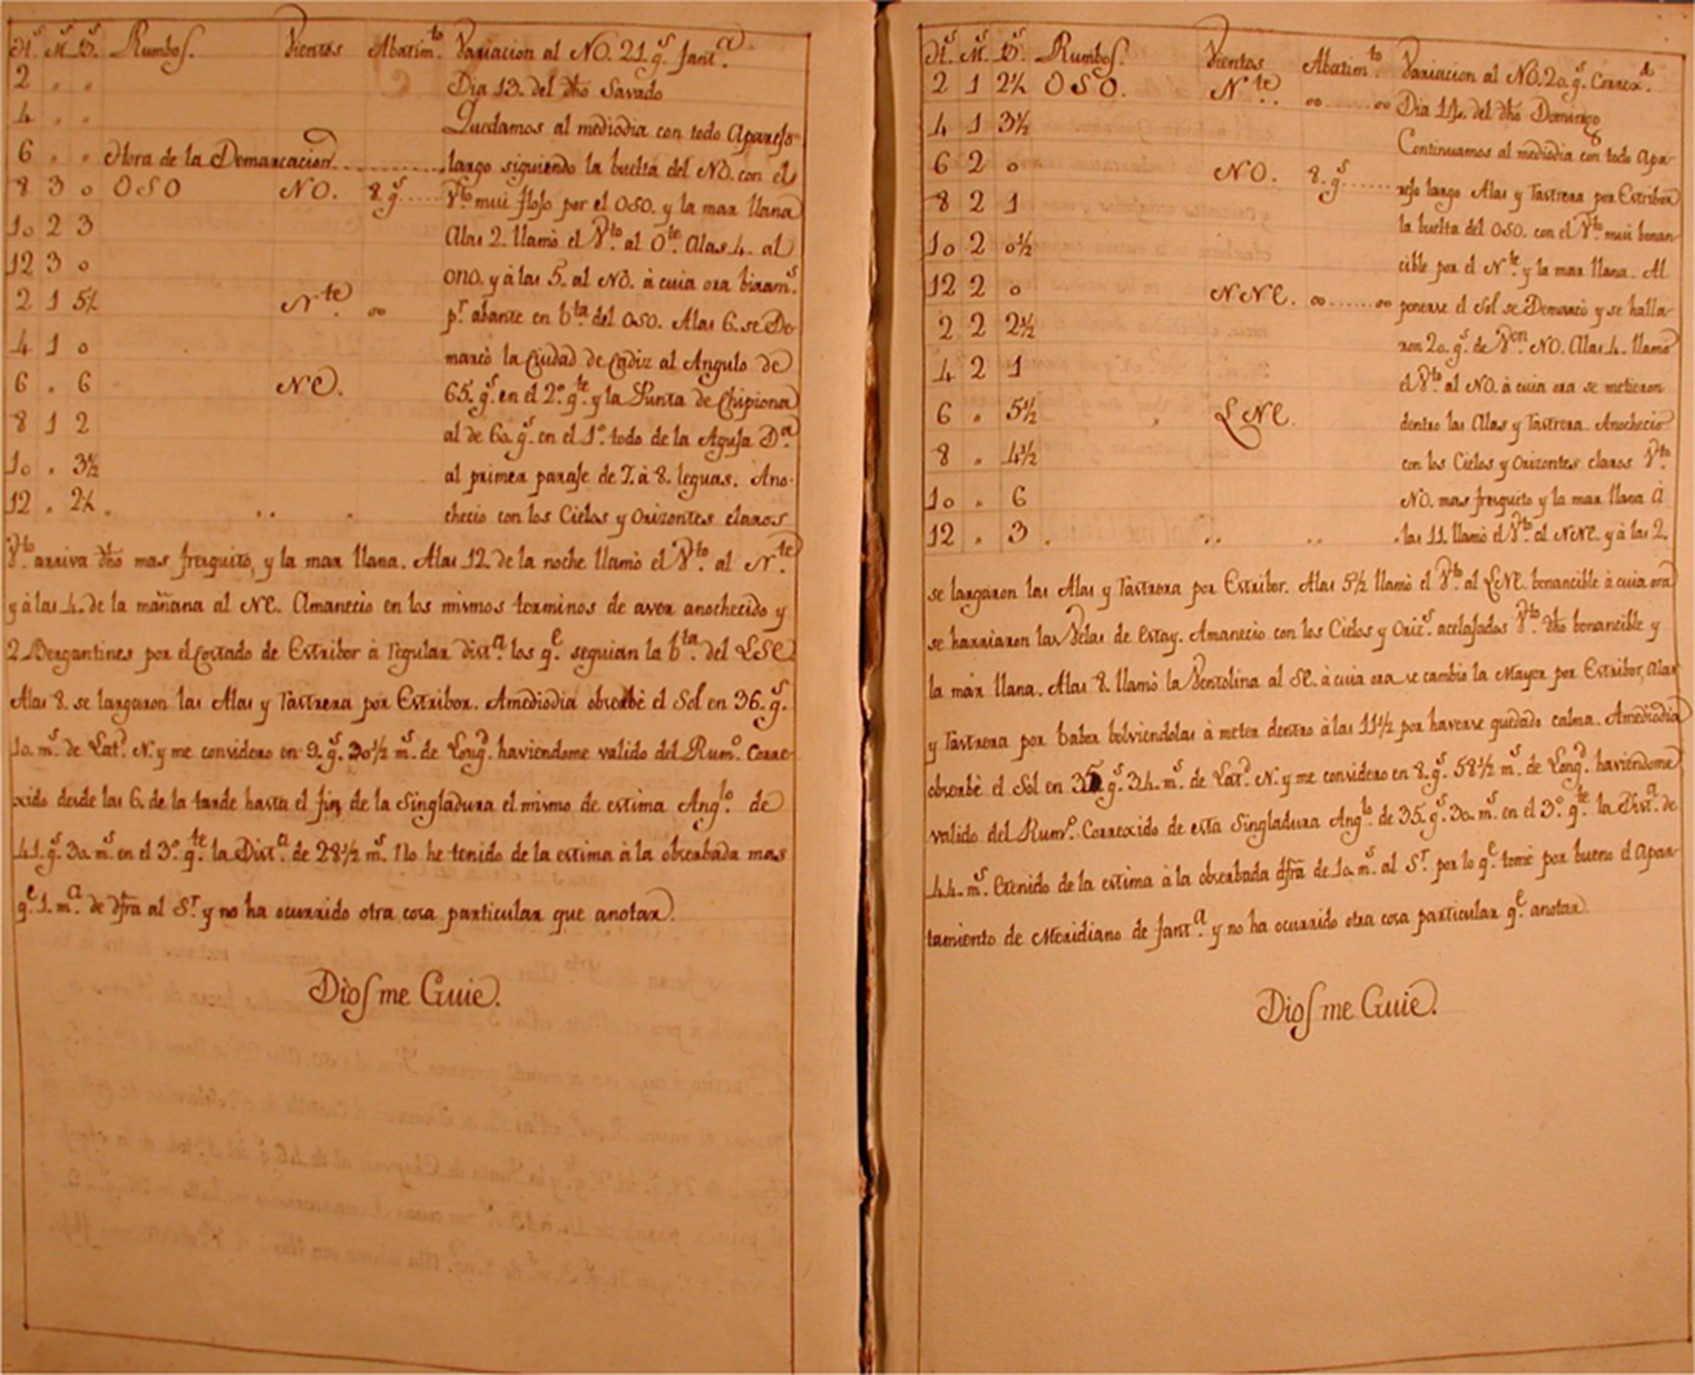 H.s M.s B.s Rumbos. Vientos Abatim.to Variacion al NO. 21. g.s Jant.a
2 " " Dia 13. del dho Savado
4 " " Quedamos al mediodia con todo Aparejo
6 " " Hora de la Demarcacion largo siguiendo la buelta del NO. con el
8 3 0 OSO NO. 8. g.s V.to mui flojo por el OSO. y la mar llana
10 2 3 Alas 2. llamò el V.to al O.te Alas 4. al
12 3 0 ONO. y à las 5. al NO. à cuia ora biram.s
2 1 5½ N.te oo p.r abante en b.ta del OSO. Alas 6. se De-
4 1 0 marcò la Ciudad de Cadiz al Angulo de
6 " 6 NE. 65. g.s en el 2.o q.te y la Punta de Chipiona
8 1 2 al de 60. g.s en el 1.o todo de la Aguja D.a
10 " 3½ al primer paraje de 7. à 8. leguas. Ano-
12 " 2½ " " " checio con los Cielos y Orizontes claros
V.to arriva dho mas fresquito, y la mar llana. Alas 12. de la noche llamò el V.to al N.te
y à las 4. de la mañana al NE. Amanecio en los mismos terminos de aver anochecido y
2. Bergantines por el Costado de Estribor à regular dist.a los q.e seguian la b.ta del ESE.
Alas 8. se largaron las Alas y Rastrera por Estribor. Amediodia obserbè el Sol en 36. g.s
10. m.s de Lat.d N. y me considero en 9. g.s 30½ m.s de Long.d haviendome valido del Rum.o Corre-
xido desde las 6. de la tarde hasta el fin de la Singladura el mismo de estima Ang.lo de
41. g.s 30. m.s en el 3.o q.te la Dist.a de 28½ m.s No he tenido de la estima à la obserbada mas
q.e 1. m.a de dfra al S.r y no ha ocurrido otra cosa particular que anotar.
Dios me Guie.
H.s M.s B.s Rumbos. Vientos Abatim.to Variacion al NO. 20. g.s Correx.d
2 1 2½ OSO. N.te oo oo Dia 14. del dho Domingo
4 1 3½ Continuamos al mediodia con todo Apa-
6 2 0 NO. 8. g.s rejo largo Alas y Rastrera por Estribor
8 2 1 la buelta del OSO. con el V.to mui bonan-
10 2 0½ cible por el N.te y la mar llana. Al
12 2 0 NNE. oo oo ponerse el Sol se Demarcò y se halla-
2 2 2½ ron 20. g.s de V.on NO. Alas 4. llamò
4 2 1 el V.to al NO. à cuia ora se metieron
6 " 5½ " ENE. dentro las Alas y Rastrera. Anochecio
8 " 4½ con los Cielos y Orizontes claros V.to
10 " 6 NO. mas fresquito y la mar llana à
12 " 3 " " " las 11. llamò el V.to al NNE. y à las 2.
se largaron las Alas y Rastrera por Estribor. Alas 5½ llamò el V.to al ENE. bonancible à cuia ora
se harriaron las Velas de Estay. Amanecio con los Cielos y Oriz.s acelajados V.to dho bonancible y
la mar llana. Alas 8. llamò la Ventolina al SE. à cuia ora se cambiò la Mayor por Estribor, Alas
y Rastrera por babor bolviendolas à meter dentro à las 11½ por haverse quedado calma. Amediodia
obserbè el Sol en 35 g.s 34. m.s de Lat.d N. y me considero en 8. g.s 58½ m.s de Long.d haviendome
valido del Rum.o Correxido de esta Singladura Ang.lo de 35. g.s 30. m.s en el 3.o q.te la Dist.a de
44. m.s Etenido de la estima à la obserbada dfra de 10. m.s al S.r por lo q.e tomè por bueno el Apar-
tamiento de Meridiano de Jant.a y no ha ocurrido otra cosa particular q.e anotar.
Dios me Guie.